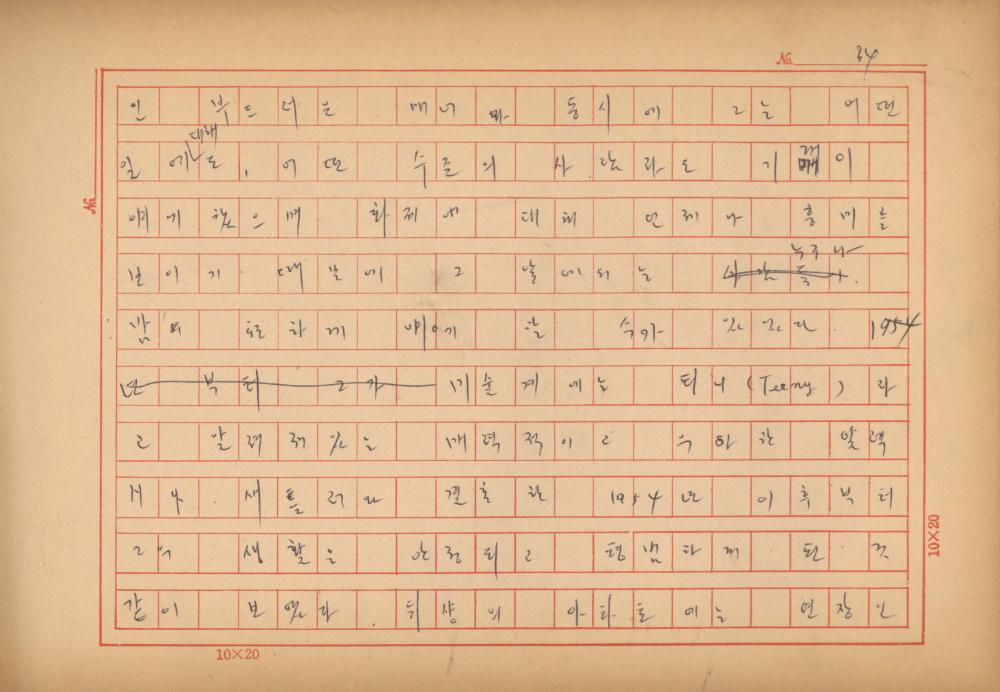 No. 34
인 부드러운 매너와 동시에 그는 어떤
일에 대해도, 어떤 수준의 사람과도 기꺼이
얘기했으며 화제에 대해 언제나 흥미를
보이기 때문에 그 날에의는 누구나
밤의 하게 얘이기 할 수가 있었다. 1954
년부터 그가 미술계에는 티니(Teeny)라
고 알려져 있는 매력적이고 우아한 알렉
사나 새틀러와 결혼한 1954년 이후부터
그의 생활은 안정되고 평범하게 된 것
같이 보였다. 뒤샹의 아파트에는 연장인
No.
10×20
10×20